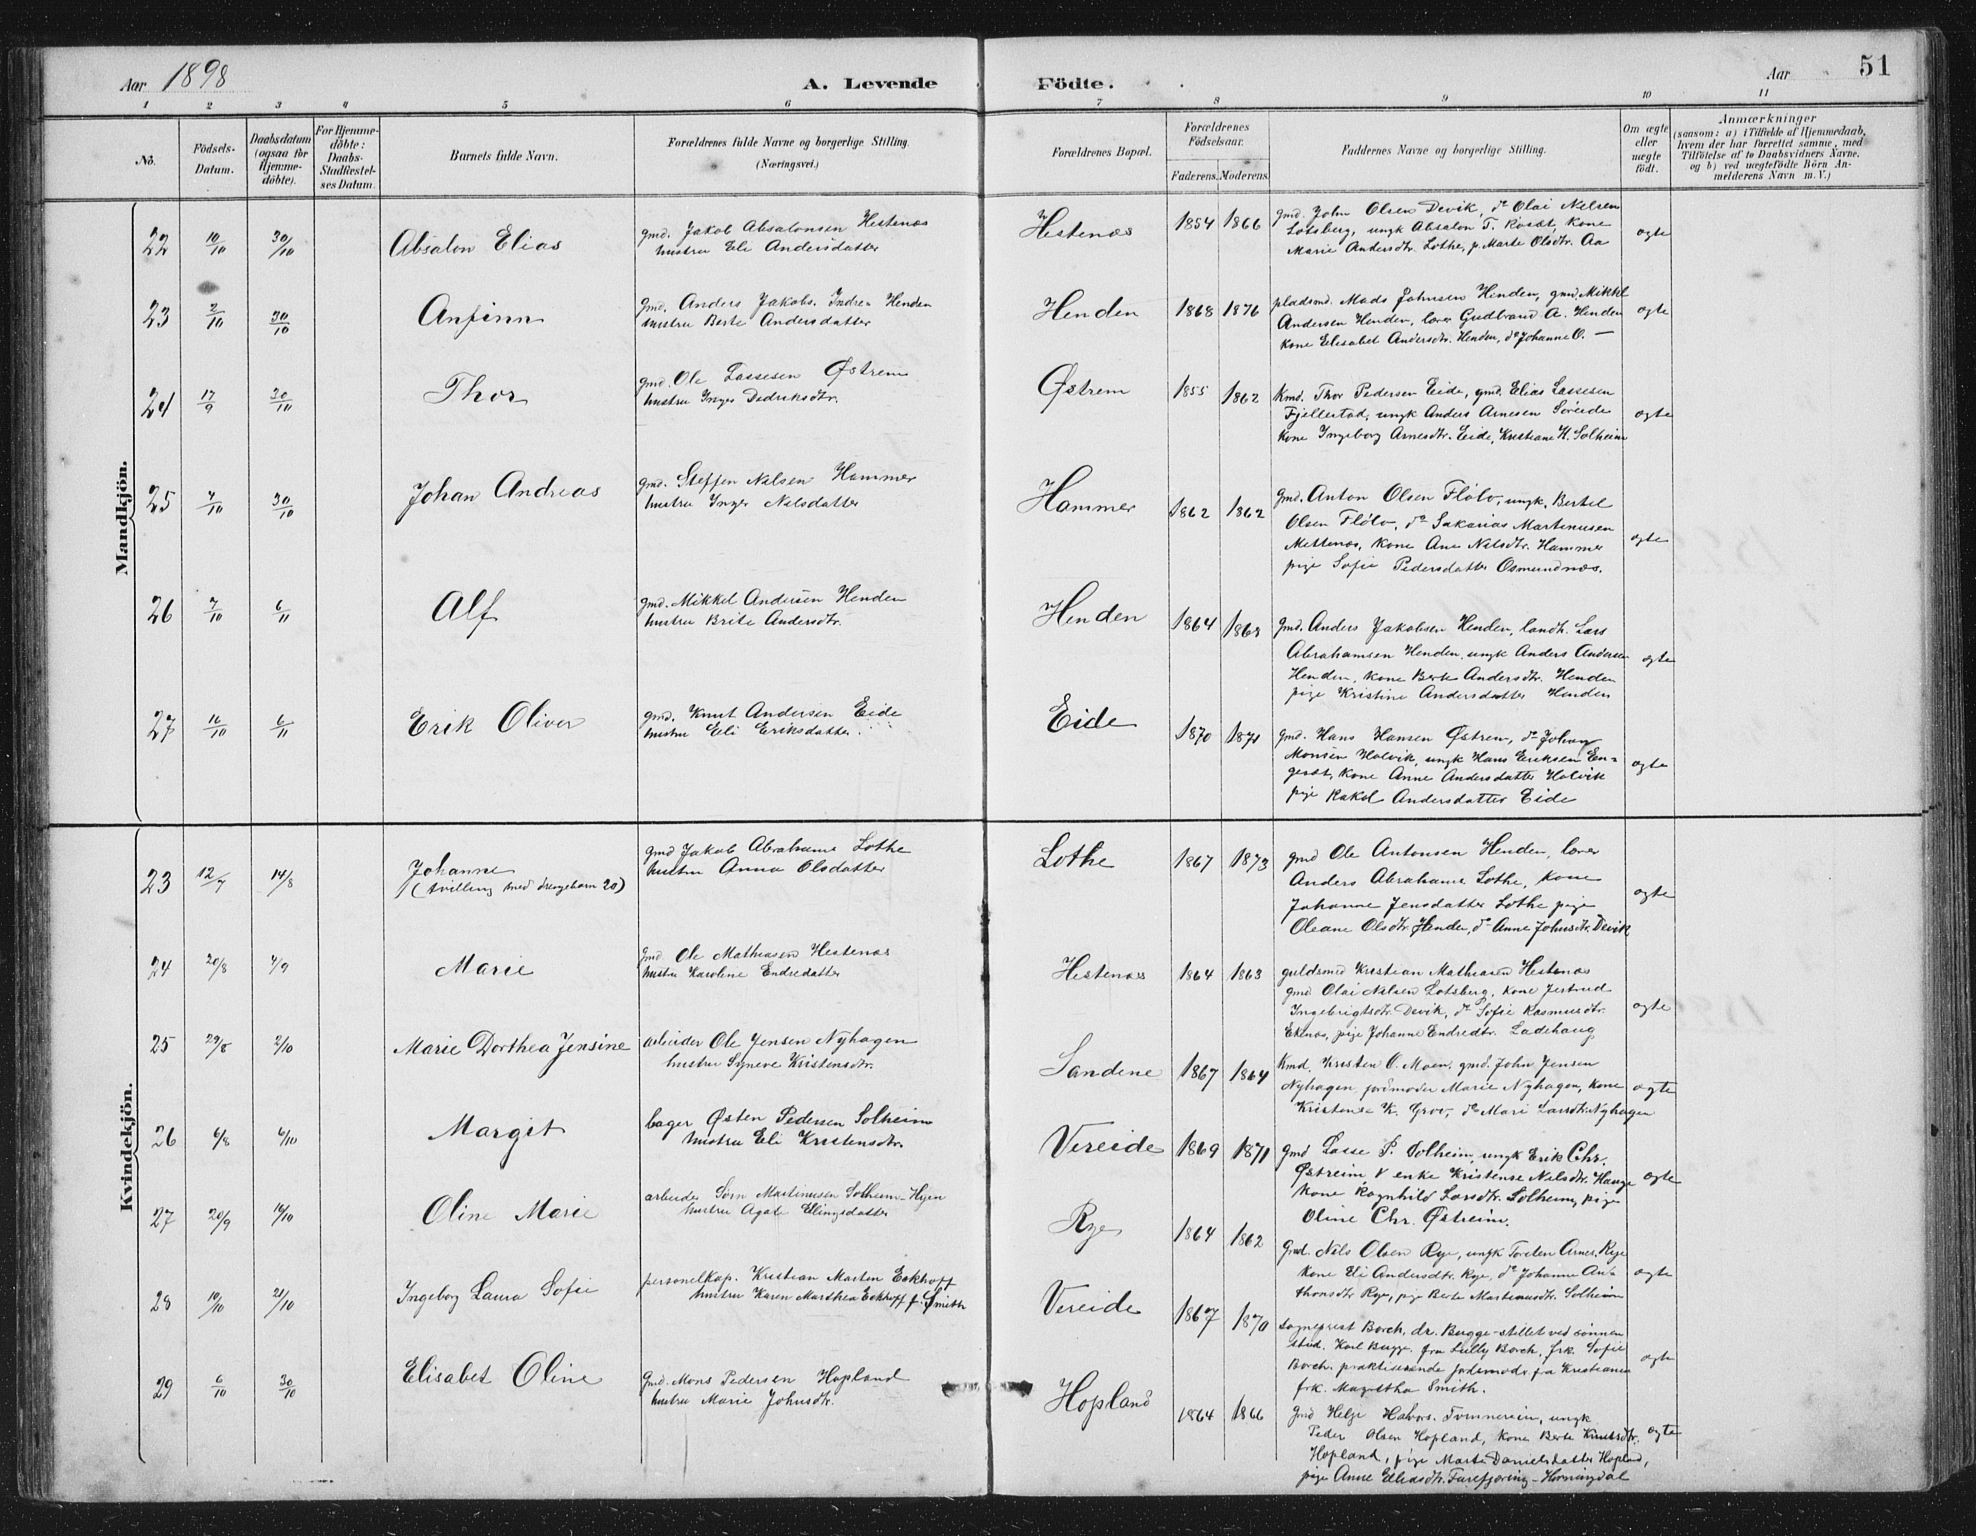 Aar 1898
A. Levende Födte.
Aar
51
1 2 3 4 5 6 7 8 9 10 11
No.
Födsels-Datum.
Daabsdatum (ogsaa for Hjemme-döbte).
For Hjemme-döbte: Daabs-Stadfæstel-ses Datum.
Barnets fulde Navn.
Forældrenes fulde Navne og borgerlige Stilling. (Næringsvei.)
Forældrenes Bopæl.
Forældrenes Födselsaar.
Faderens. Moderens.
Faddernes Navne og borgerlige Stilling.
Om ægte eller uægte födt.
Anmærkninger
(saasom: a) i Tilfælde af Hjemmedaab, hvem der har forrettet samme, med Tilföielse af to Daabsvidners Navne, og b) ved uægtefödte Börn An-melderens Navn m. V.)
Mandkjön.
22 10/10 30/10 Absalon Elias
gmd. Jakob Absalonsen Hestenæs
hustru Eli Andersdatter
Hestenæs 1854 1866
gmd. John Olsen Devik, do Olai Nilsen
Lotsberg, ungk Absalon T. Rosæt, Kone
Marie Andersdtr. Lothe, p. Marte Olsdtr. Aa
ægte
23 2/10 30/10 Anfinn
gmd. Anders Jakobs. Indre Henden
hustru Berte Andersdatter
Henden 1868 1876
pladsmd. Mads Johnsen Henden, gmd. Mikkel
Andersen Henden, lærer Gudbrand A. Henden
kone Elisabet Andersdtr. Henden, do Johanne O. —
ægte
24 17/9 30/10 Thor
gmd. Ole Lassesen Østrem
hustru Inger Didriksdtr.
Østrem 1855 1862
Kmd. Thor Pedersen Eide, gmd. Elias Lassesen
Fjellestad, ungk Anders Arnesen Søreide
Kone Ingeborg Arnesdtr. Eide, Kristiane H. Solheim
ægte
25 7/10 30/10 Johan Andreas
gmd. Steffen Nilsen Hammer
hustru Inger Nilsdatter
Hammer 1862 1862
gmd. Anton Olsen Fløtv, ungk. Bertel
Olsen Fløtv, do Sakarias Martinusen
Mettenæs, Kone Ane Nilsdtr. Hammer
pige Sofie Pedersdatter Osmundnæs.
ægte
26 7/10 6/11 Alf
gmd. Mikkel Andersen Henden
hustru Brite Andersdtr.
Henden 1864
gmd. Anders Jakobsen Henden, landh. Lars
Abrahamsen Henden, ungk Anders Andersen
Henden, Kone Berte Andersdtr. Henden
pige Kristine Andersdatter Henden
ægte
27 16/10 6/11 Erik Oliver
gmd. Knut Andersen Eide
hustru Eli Eriksdatter
Eide 1870 1871
gmd. Hans Hansen Østrem, do Johan
Monsen Holvik, ungk Hans Eriksen En-
gesæt, Kone Anne Andersdatter Holvik
pige Rakel Andersdatter Eide
ægte
Kvindekjön.
23 12/7 14/8 Johanne
(tvilling med drengebarn 20)
gmd Jakob Abrahams Lothe
hustru Anna Olsdatter
Lothe 1867 1873
gmd Ole Antonsen Henden, lærer
Anders Abrahams Lothe, Kone
Johanne Jensdatter Lothe pige
Oleane Olsdtr. Henden, do Anne Johnsdtr. Devik
ægte
24 20/8 4/9 Marie
gmd Ole Mathiasen Hestenæs
hustru Karoline Endredatter
Hestenæs 1864 1863
guldsmed Kristian Mathiasen Hestenæs
gmd Olai Nilsen Lotsberg, Kone Jertrud
Ingebrigtsdtr. Devik, do Sofie Rasmusdtr.
Ekenæs, pige Johanne Endredtr. Ladehaug
ægte
25 29/8 2/10 Marie Dorthea Jensine
arbeider Ole Jensen Nyhagen
hustru Synneve Kristensdtr.
Sandene 1867 1864
Kmd. Kristen O. Moen, gmd. John Jensen
Nyhagen, jordmoder Marie Nyhagen, kone
Kristense K. Grov, do Mari Larsdtr. Nyhagen
ægte
26 6/8 6/10 Margit
bager Østen Pedersen Solheim
hustru Eli Kristensdtr.
Vereide 1869 1871
gmd Lasse P. Solheim, ungk Erik Chr.
Østreim, enke Kristense Nilsdtr. Hauge
Kone Ragnhild Larsdtr. Solheim, pige
Oline Chr. Østreim.
ægte
27 20/9 16/10 Oline Marie
arbeider Sørn Martinusen Solheim-Hyen
hustru Agate Ellingsdatter
Rye 1864 1862
Gmd. Nils Olsen Rye, ungk Torsten Arnes. Rye
Kone Eli Andersdtr. Rye, do Johanne An-
thonsdtr Rye, pige Berte Martinusdtr. Solheim
ægte
28 10/10 21/10 Ingeborg Laura Sofie
personelkap. Kristian Morten Eckhoff
hustru Karen Marthea Eckhoff f. Smith
Vereide 1867 1870
sogneprest Borch, dr. Bugge-stillet ved sønnen
stud. Karl Bugge, fru Lully Borch, frk. Sofie
Borch, praktiserende jordmoder fra Kristiania
frk. Magretha Smith.
ægte
29 6/10 30/10 Elisabet Oline
Gmd. Mons Pedersen Hopland
hustru Marie Johnsdtr.
Hopland 1864 1866
Gmd Helje Halvors. Tvinnereim, ungk
Peder Olsen Hopland, kone Berte Knutsdtr.
Hopland, pige Marte Danielsdatter Hopland,
pige Anne Eliasdtr. - Horningdal
ægte